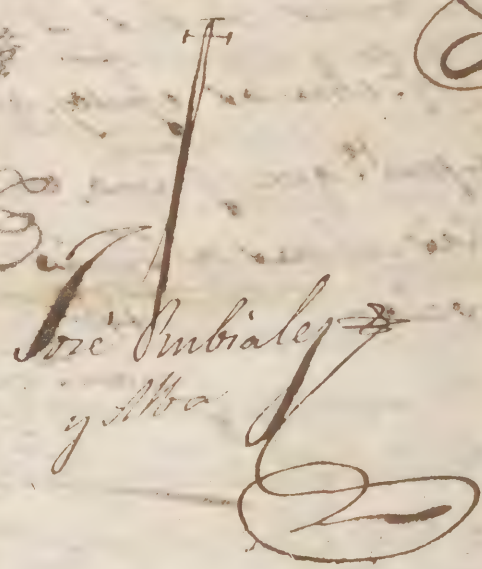 José Rubiales
y Alba